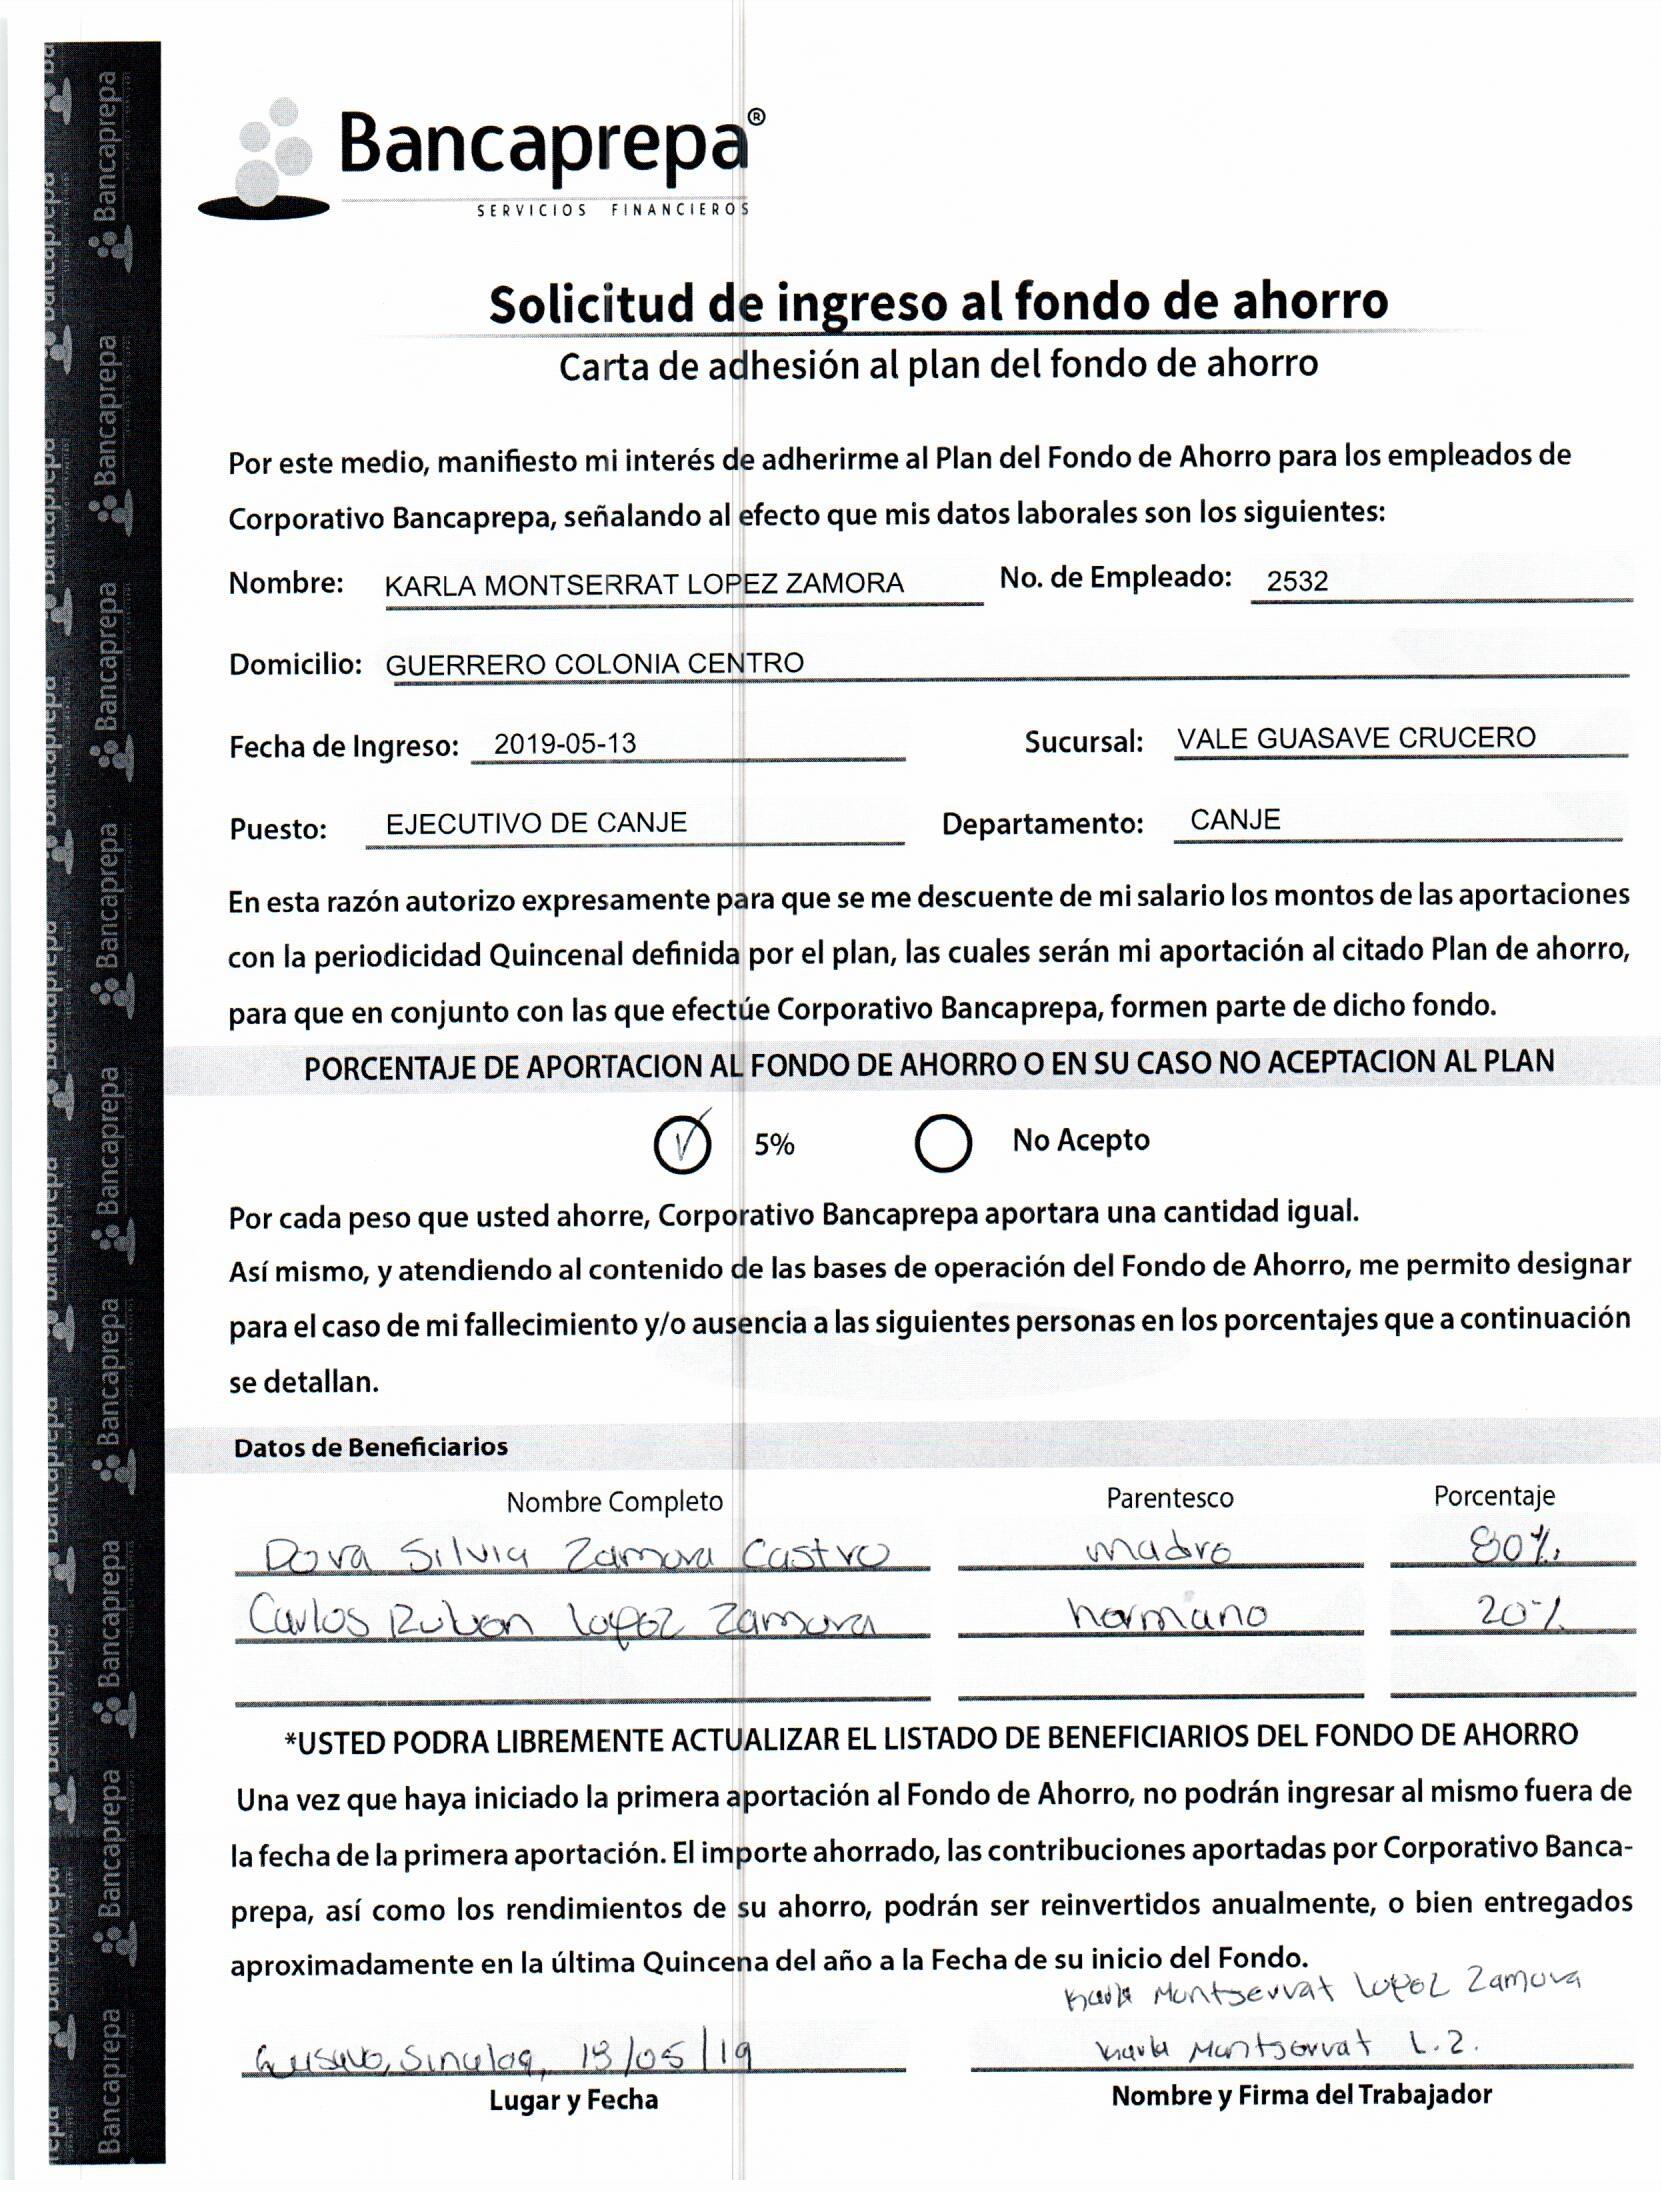 Bancaprepa®
SERVICIOS FINANCIEROS
Solicitud de ingreso al fondo de ahorro
Carta de adhesión al plan del fondo de ahorro
Por este medio, manifiesto mi interés de adherirme al Plan del Fondo de Ahorro para los empleados de
Corporativo Bancaprepa, señalando al efecto que mis datos laborales son los siguientes:
Nombre: KARLA MONTSERRAT LOPEZ ZAMORA No. de Empleado: 2532
Domicilio: GUERRERO COLONIA CENTRO
Fecha de Ingreso: 2019-05-13 Sucursal: VALE GUASAVE CRUCERO
Puesto: EJECUTIVO DE CANJE Departamento: CANJE
En esta razón autorizo expresamente para que se me descuente de mi salario los montos de las aportaciones
con la periodicidad Quincenal definida por el plan, las cuales serán mi aportación al citado Plan de ahorro,
para que en conjunto con las que efectúe Corporativo Bancaprepa, formen parte de dicho fondo.
PORCENTAJE DE APORTACION AL FONDO DE AHORRO O EN SU CASO NO ACEPTACION AL PLAN
5% No Acepto
Por cada peso que usted ahorre, Corporativo Bancaprepa aportara una cantidad igual.
Así mismo, y atendiendo al contenido de las bases de operación del Fondo de Ahorro, me permito designar
para el caso de mi fallecimiento y/o ausencia a las siguientes personas en los porcentajes que a continuación
se detallan.
Datos de Beneficiarios
Nombre Completo Parentesco Porcentaje
Dora Silvia Zamora Castro madre 80%
Carlos Ruben Lopez Zamora hermano 20%
*USTED PODRA LIBREMENTE ACTUALIZAR EL LISTADO DE BENEFICIARIOS DEL FONDO DE AHORRO
Una vez que haya iniciado la primera aportación al Fondo de Ahorro, no podrán ingresar al mismo fuera de
la fecha de la primera aportación. El importe ahorrado, las contribuciones aportadas por Corporativo Banca-
prepa, así como los rendimientos de su ahorro, podrán ser reinvertidos anualmente, o bien entregados
aproximadamente en la última Quincena del año a la Fecha de su inicio del Fondo.
Karla Montserrat Lopez Zamora
Guasave, Sinaloa, 13/05/19 Karla Montserrat L.Z.
Lugar y Fecha Nombre y Firma del Trabajador